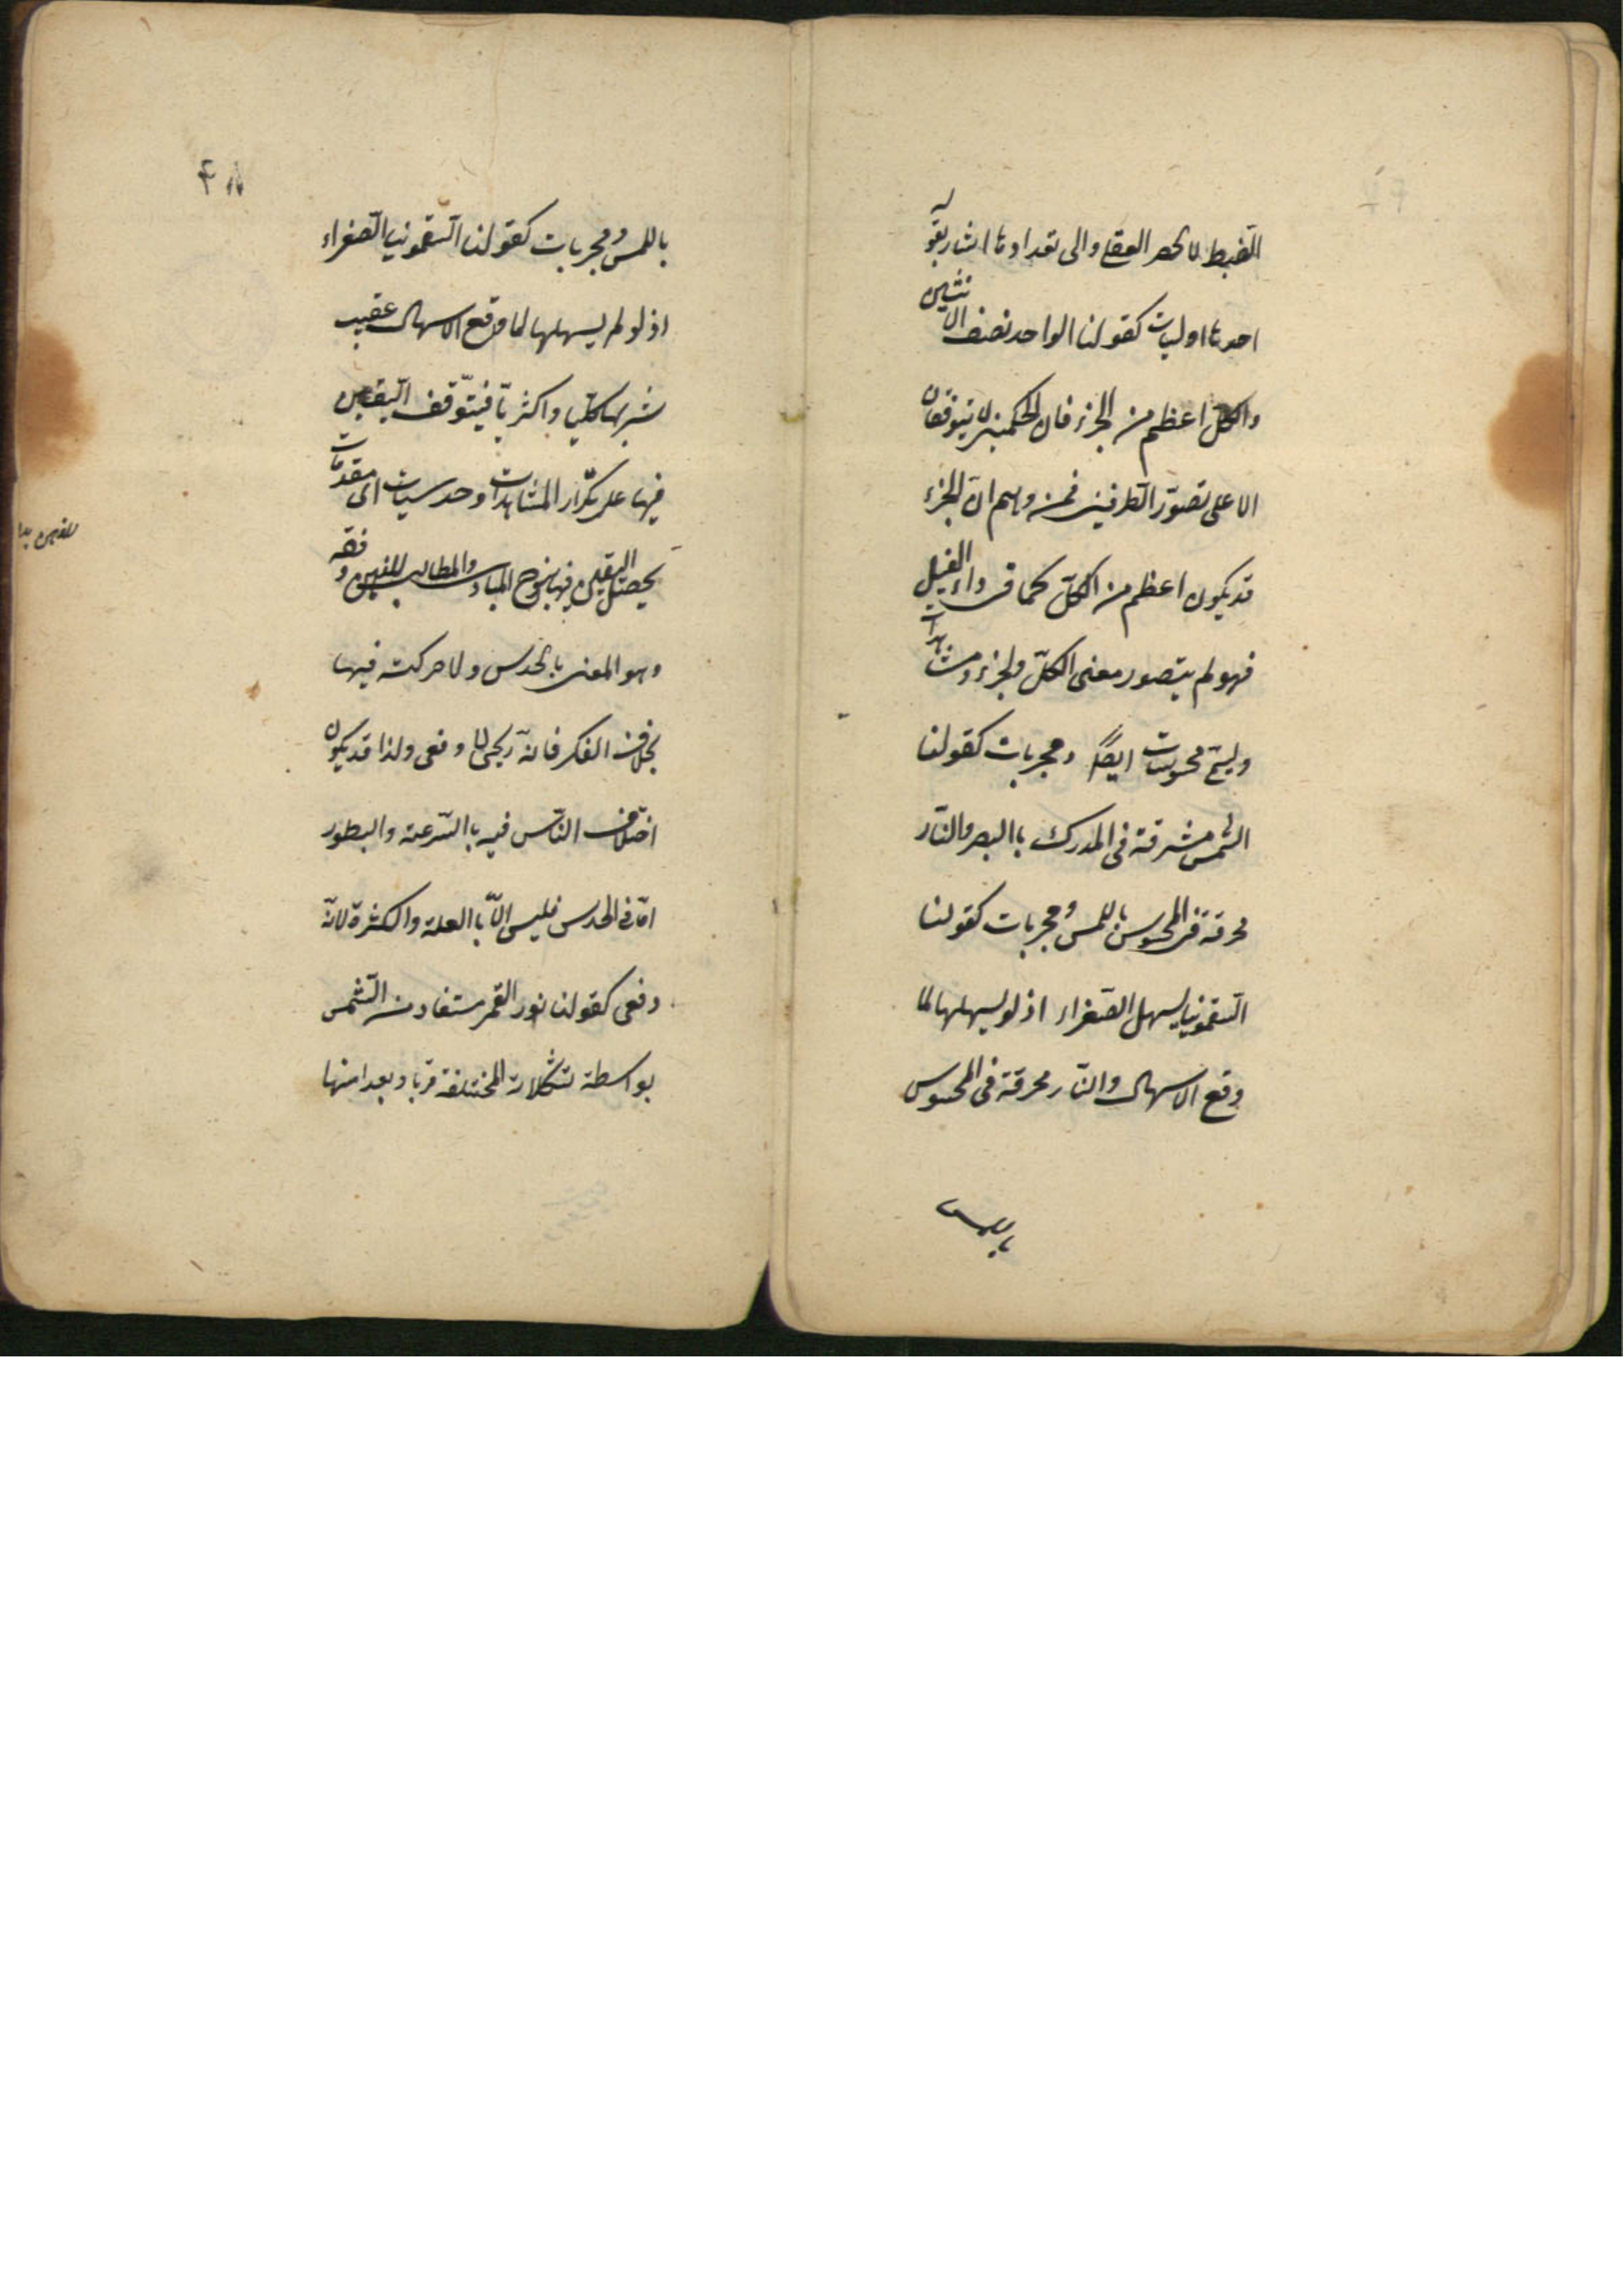 الضبط لا الحصر العقلى والى تعدادها اشار بقوله
احدها اوليات كقولنا الواحد نصف الاثنين
والكلّ اعظم من الجزء فان الحكمين لا يتوقفان
الا على تصوّر الطرفين فمن وهم انّ الجزء
قد يكون اعظم من الكلّ كما فى داء الفيل
فهو لم يتصور معنى الكلّ والجزء ومشاهدات
ويسمّى محسوسات ايضًا ومجربات كقولنا
الشمس مشرقة فى المدرك باالبصر والنّار
محرقة فى المحسوس باللمس ومجربات كقولنا
السّقمونيا يسهل الصّفراء اذ لو يسهلها لما
وقع الاسهال والنّار محرقة فى المحسوس
باللمس
باللمس ومجربات كقولنا السّقمونيا الصّفراء
اذ لو لم يسهلها لما وقع الاسهال عقيب
شربها كليا واكثريّا فيتوّقف اليقين
فيها على تكرّار المشاهدات وحدسيات اى مقدمات
يحصل اليقين فيها بسنوح المبادى والمطالب للنفس دفعة
وهو المعنى بالحدس ولا حركة فيها
بخلاف الفكر فانّه تدريجى لا دفعى ولذا قد يكون
اختلاف النّاس فيه باالسّرعة والبطور
امّا فى الحدس فليس الّا باالعلة والكثرة لانّه
دفعى كقولنا نور القمر مستفاد من الشّمس
بواسطة تشكلاته المختلفة قربا وبعدا منها